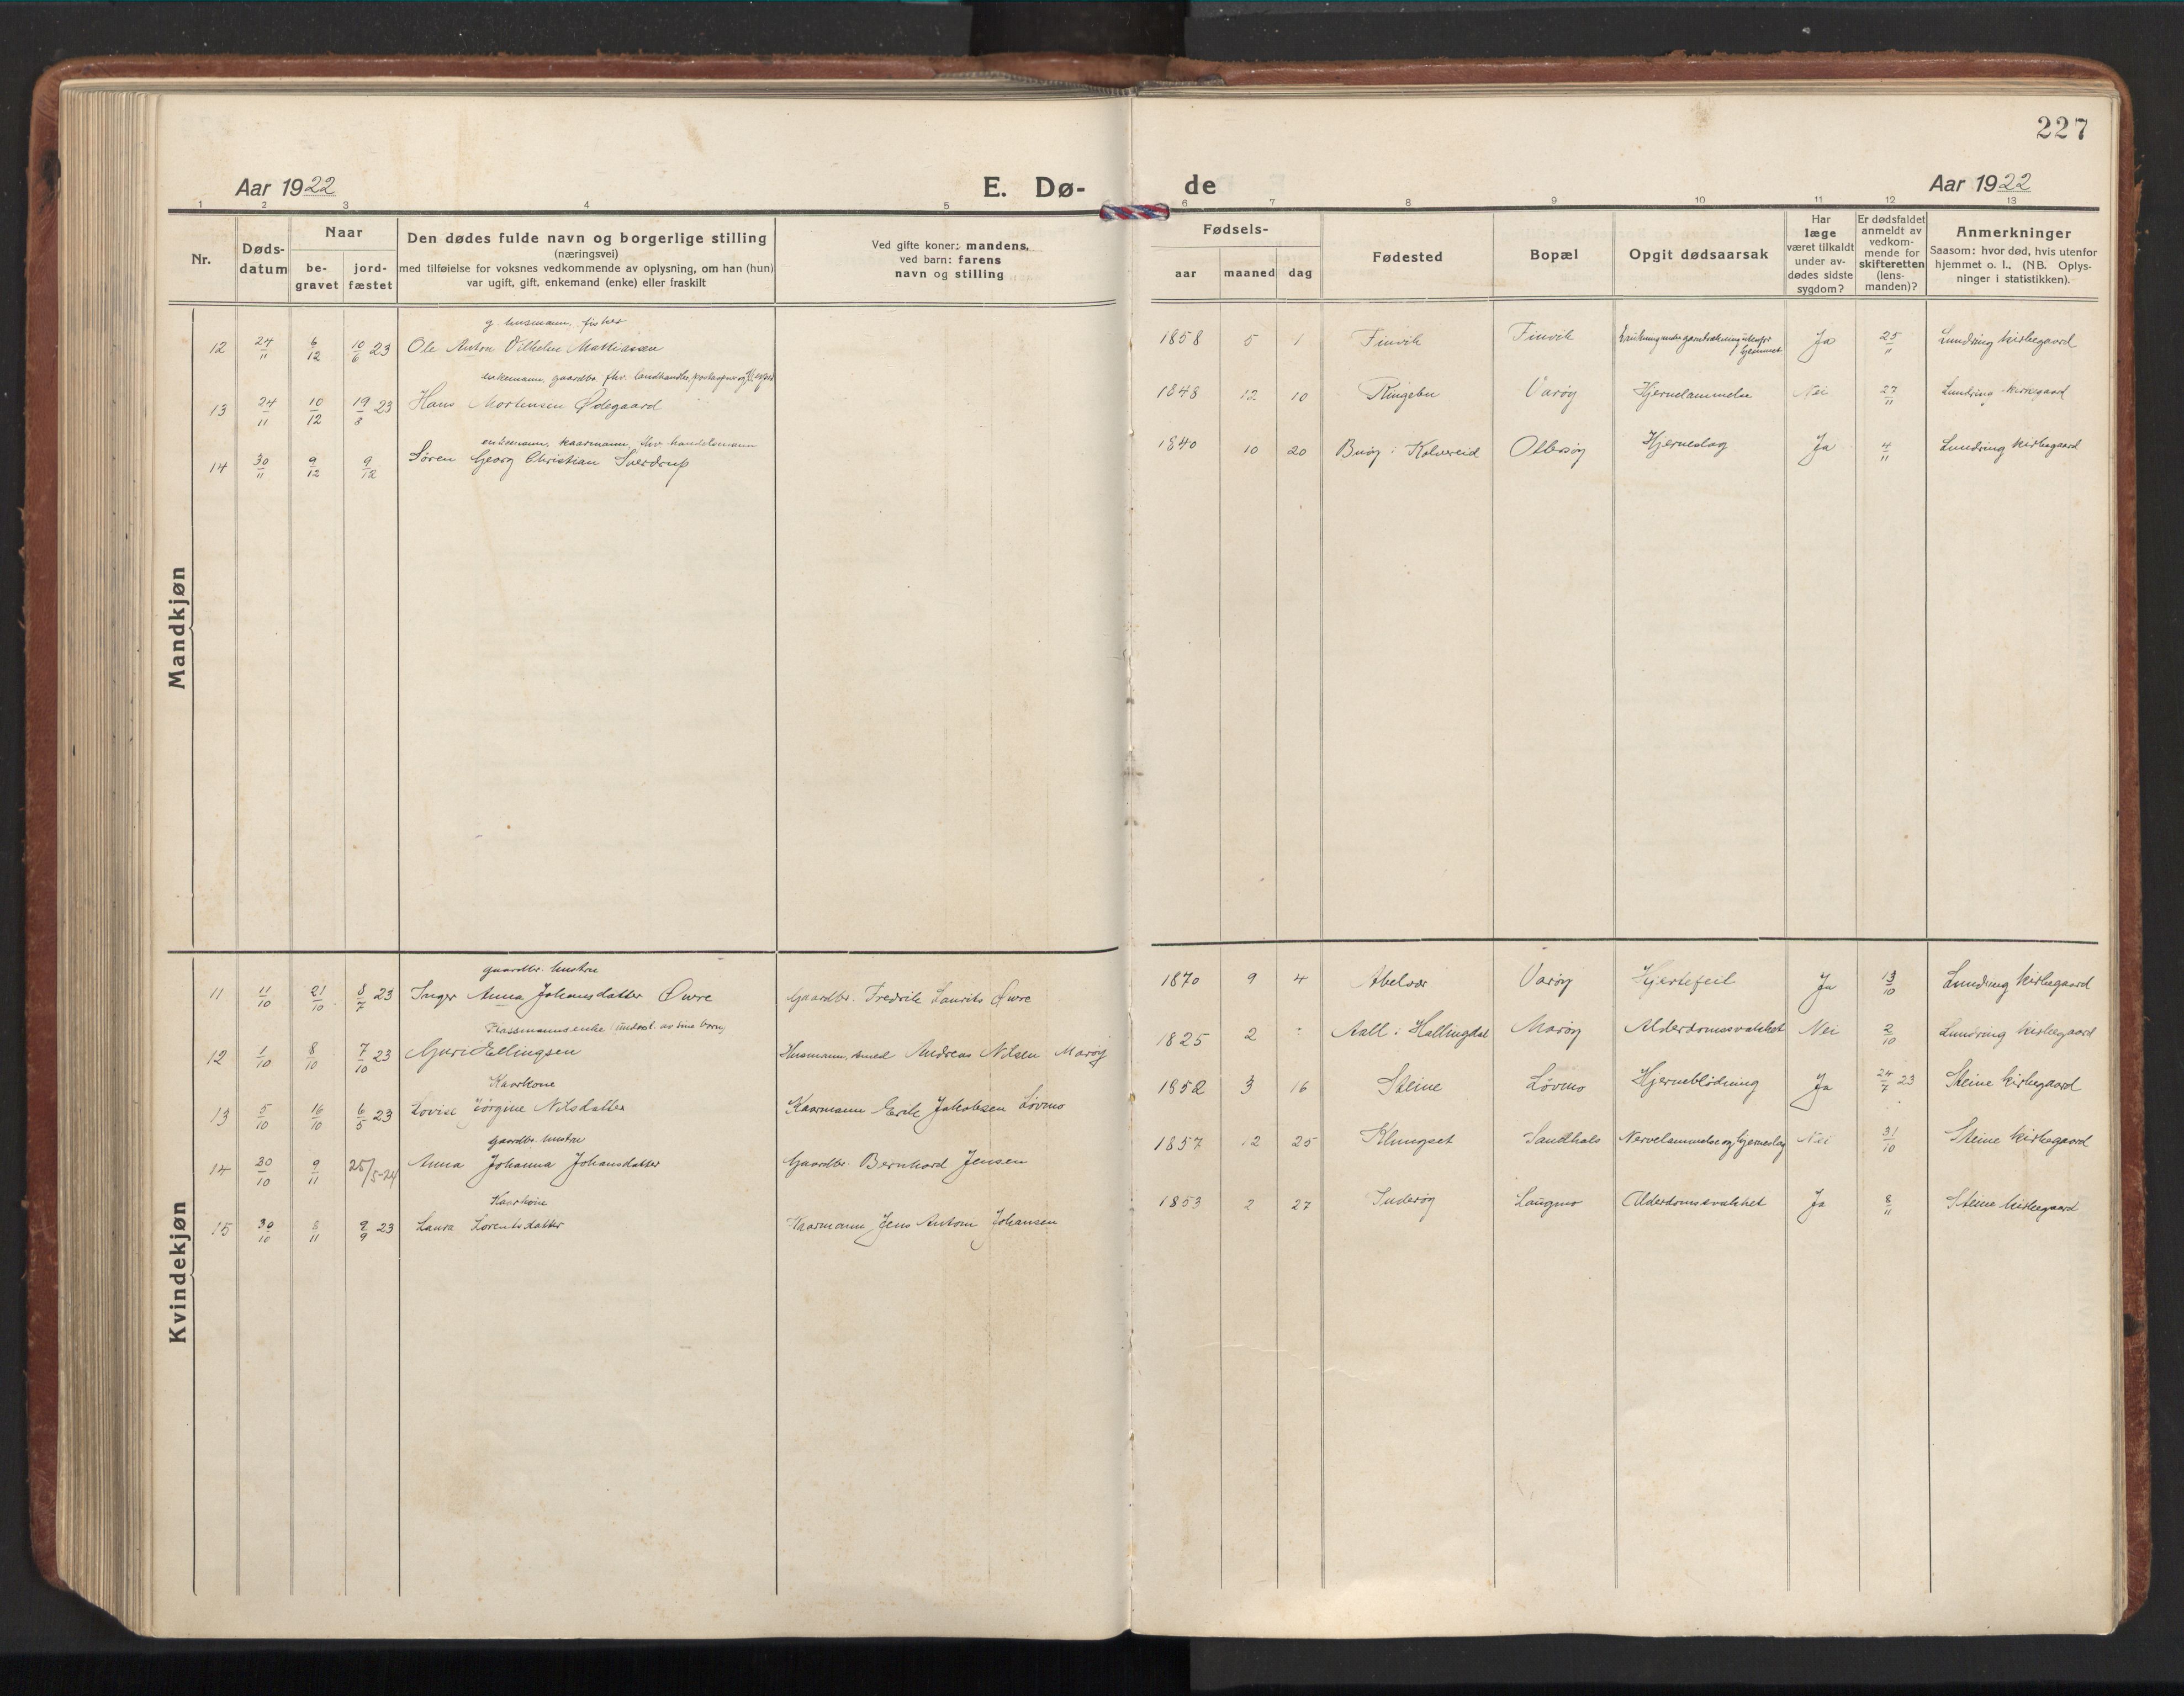 227
Aar 1922
E. Dø-
de
Aar 1922
1 2 3 4 5 6 7 8 9 10 11 12 13
Nr.
Døds-
datum
Naar
be-
gravet
jord-
fæstet
Den dødes fulde navn og borgerlige stilling
(næringsvei)
med tilføielse for voksnes vedkommende av oplysning, om han (hun)
var ugift, gift, enkemand (enke) eller fraskilt
Ved gifte koner: mandens,
ved barn: farens
navn og stilling
Fødsels-
aar maaned dag
Fødested
Bopæl
Opgit dødsaarsak
Har
læge
været tilkaldt
under av-
dødes sidste
sygdom?
Er dødsfaldet
anmeldt av
vedkom-
mende for
skifteretten
(lens-
manden)?
Anmerkninger
Saasom: hvor død, hvis utenfor
hjemmet o. l., (NB. Oplys-
ninger i statistikken).
Mandkjøn
g. husmann, fisker
12 24/11 6/12 10/6 23 Ole Anton Vilhelm Mathiassen 1858 5 1 Finvik Finvik Drukning under garntrækning utenfor hjemmet Ja 25/11 Lundring kirkegaard
enkemann, gaardbr. fhv. landhandler, postaapner og
13 24/11 10/12 19/8 23 Hans Mortensen Ødegaard 1848 12 10 Ringebu Varøy Hjernelammelse Nei 27/11 Lundring kirkegaard
enkemann, kaarmann, fhv. handelsmann
14 30/11 9/12 9/12 Søren Georg Christian Sverdrup 1840 10 20 Buøy i Kolvereid Ottersøy Hjerneslag Ja 4/11 Lundring kirkegaard
Kvindekjøn
gaardbr. hustru
11 11/10 21/10 8/7 23 Inger Anna Johansdatter Øvre Gaardbr. Fredrik Laurits Øvre 1870 9 4 Abelvær Varøy Hjertefeil Ja 13/10 Lundring kirkegaard
Plassmannsenke (underh. av sine børn)
12 1/10 8/10 7/10 23 Guri Ellingsen Husmann, smed Andreas Nilsen Marøy 1825 2 - Aall i Hallingdal Marøy Alderdomssvakhet Nei 2/10 Lundring kirkegaard
Kaarkone
13 5/10 16/10 6/5 23 Lovise Jørgine Nilsdatter Kaarmann Erik Jakobsen Løvmo 1852 3 16 Steine Løvmo Hjerneblødning Ja 24/7 23 Steine kirkegaard
gaardbr. hustru
14 30/10 9/11 25/5-24 Anna Johanna Johansdatter Gaardbr. Bernhard Jensen 1857 12 25 Klungset Sandhals Nervelammelse og hjerneslag Nei 31/10 Steine kirkegaard
Kaarkone
15 30/10 8/11 2/9 23 Laura Lorentsdatter Kaarmann Jens Antom Johansen 1853 2 27 Inderøy Langmo Alderdomssvakhet Ja 8/11 Steine kirkegaard